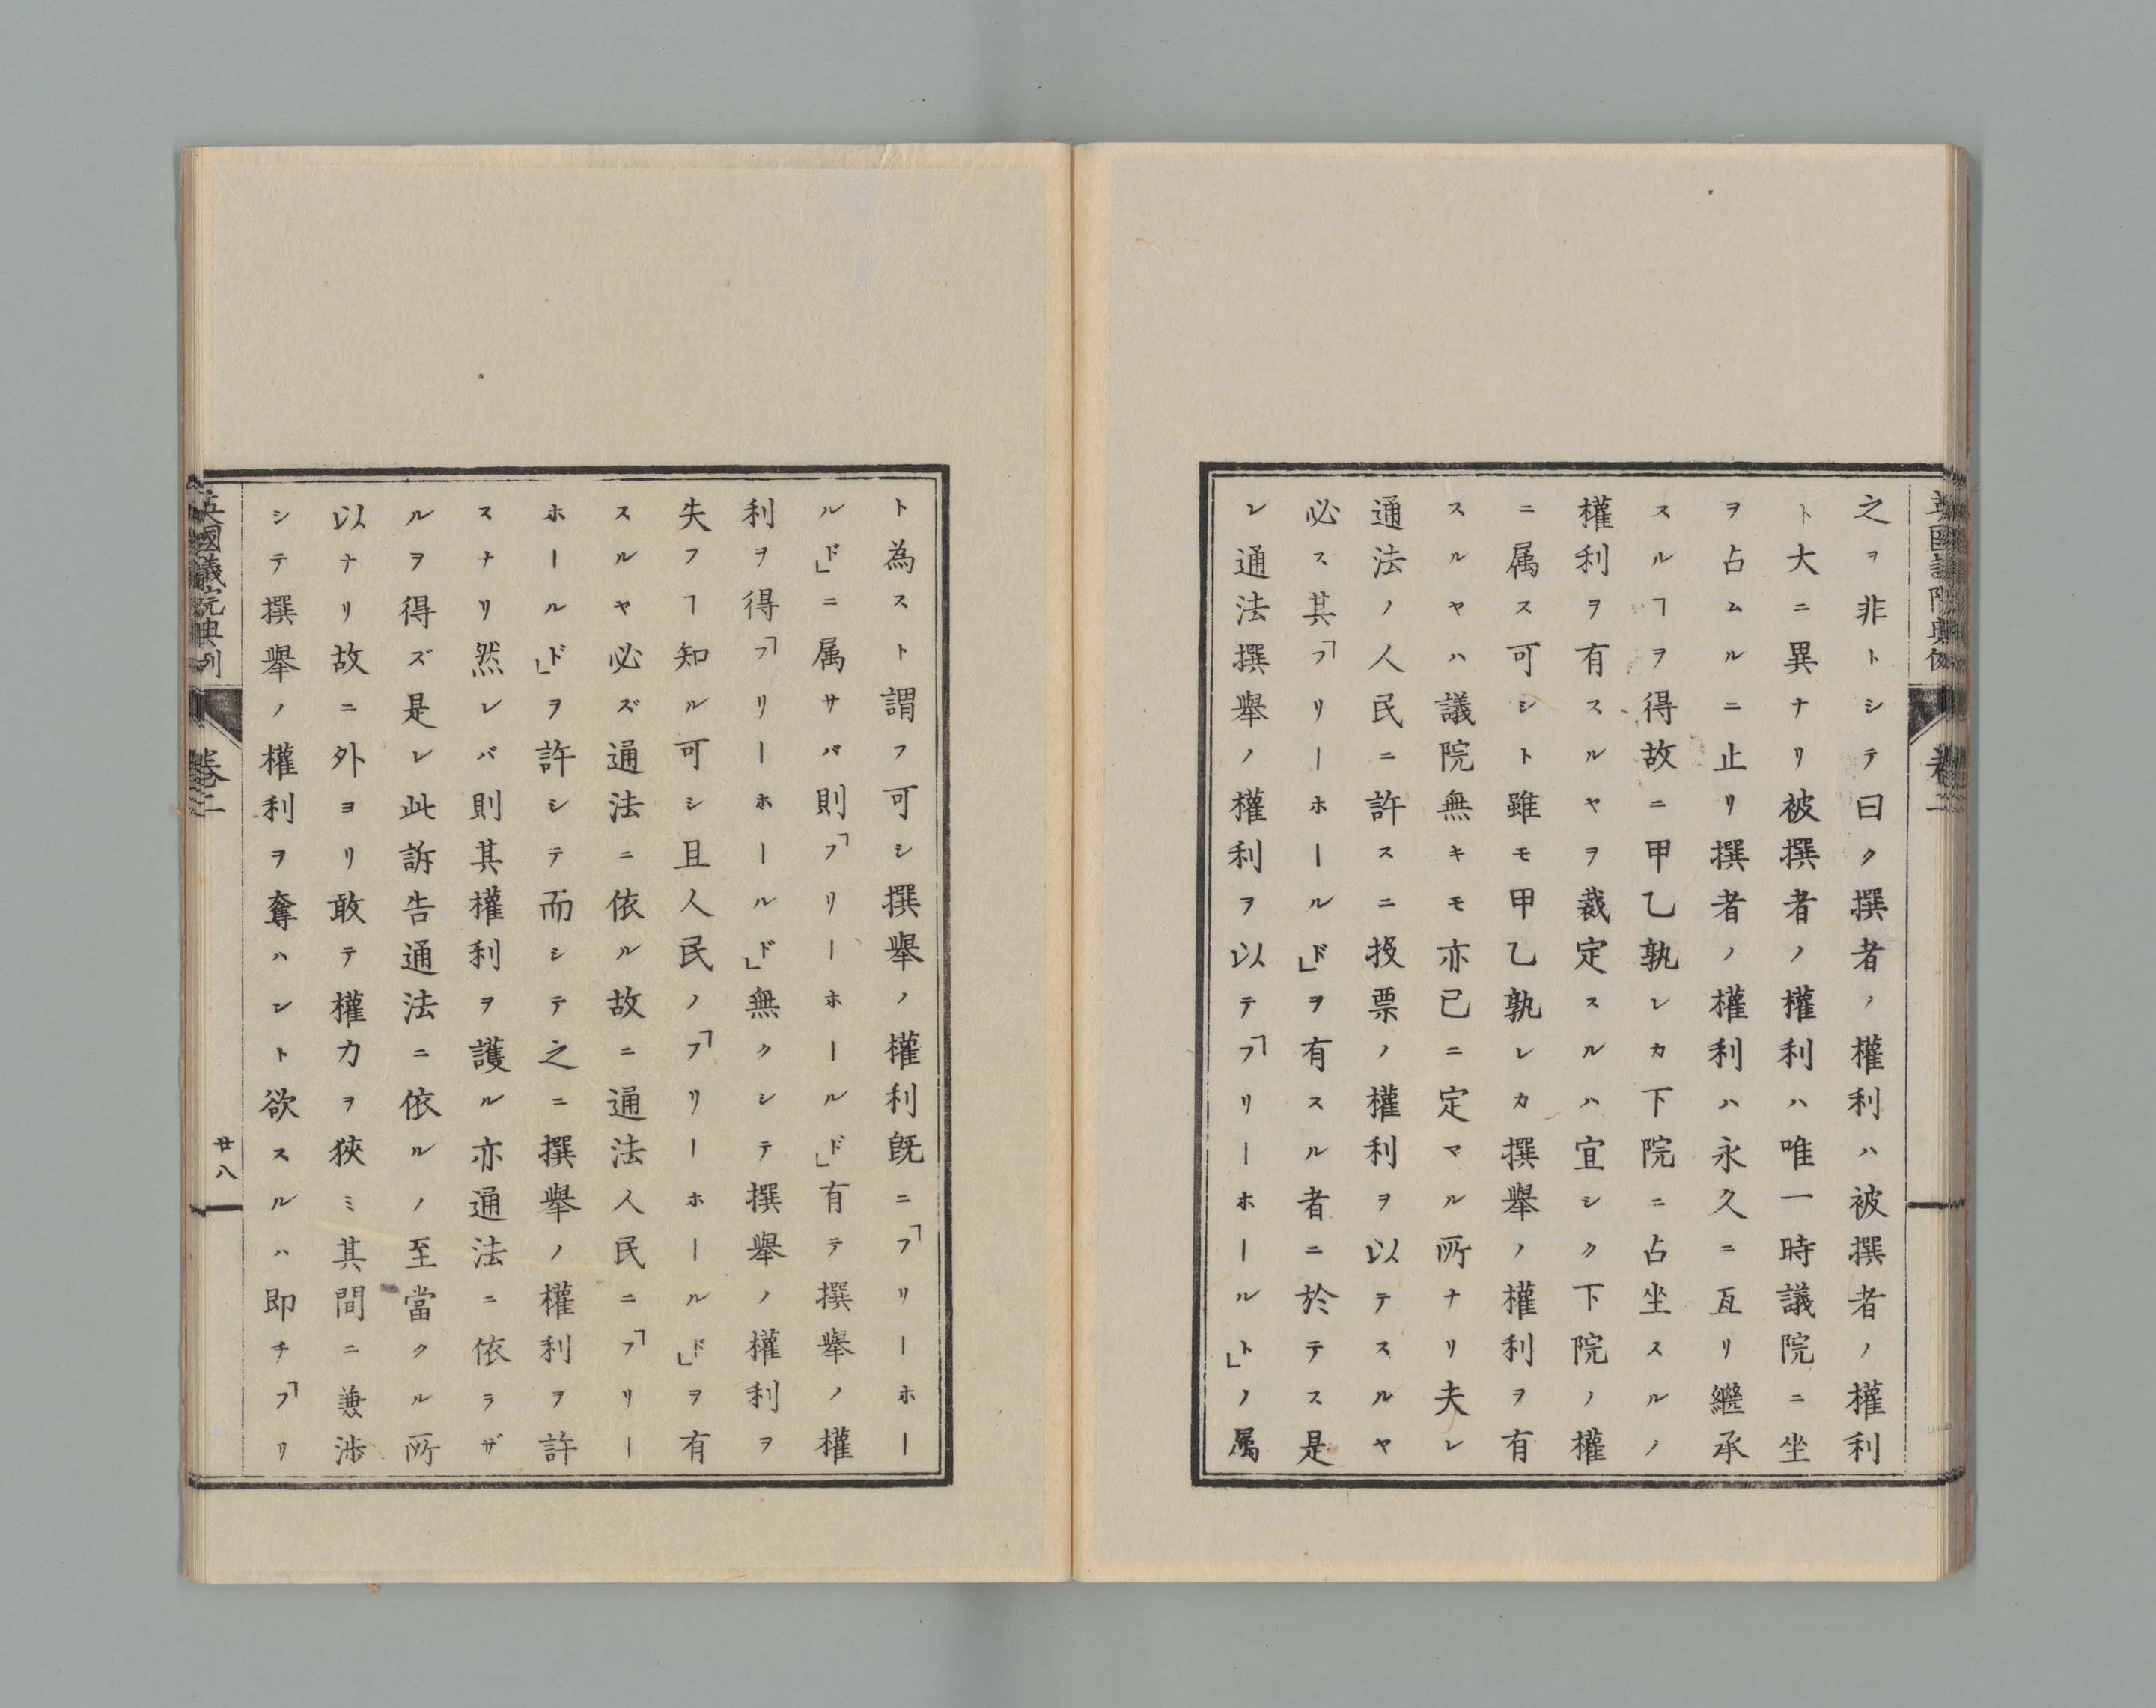 英國議院典例
卷二
之ヲ非トシテ曰ク撰者ノ權利ハ被撰者ノ權利
ト大ニ異ナリ被撰者ノ權利ハ唯一時議院ニ坐
ヲ占ムルニ止リ撰者ノ權利ハ永久ニ亙リ繼承
スルヿヲ得故ニ甲乙孰レカ下院ニ占坐スルノ
權利ヲ有スルヤヲ裁定スルハ宜シク下院ノ權
ニ属ス可シト雖モ甲乙孰レカ撰舉ノ權利ヲ有
スルヤハ議院無キモ亦已ニ定マル所ナリ夫レ
通法ノ人民ニ許スニ投票ノ權利ヲ以テスルヤ
必ス其「フリーホールド」ヲ有スル者ニ於テス是
レ通法撰舉ノ權利ヲ以テ「フリーホールト」ノ属
ト為スト謂フ可シ撰舉ノ權利既ニ「フリーホー
ルド」ニ属サバ則「フリーホールド」有テ撰舉ノ權
利ヲ得「フリーホールド」無クシテ撰舉ノ權利ヲ
失フヿ知ル可シ且人民ノ「フリーホールド」ヲ有
スルヤ必ズ通法ニ依ル故ニ通法人民ニ「フリー
ホールド」ヲ許シテ而シテ之ニ撰舉ノ權利ヲ許
スナリ然レバ則其權利ヲ護ル亦通法ニ依ラザ
ルヲ得ズ是レ此訴告通法ニ依ルノ至當クル所
以ナリ故ニ外ヨリ敢テ權力ヲ狹ミ其間ニ兼渉
シテ撰舉ノ權利ヲ奪ハント欲スルハ即チ「フリ
英國議院典例
卷二
廿八